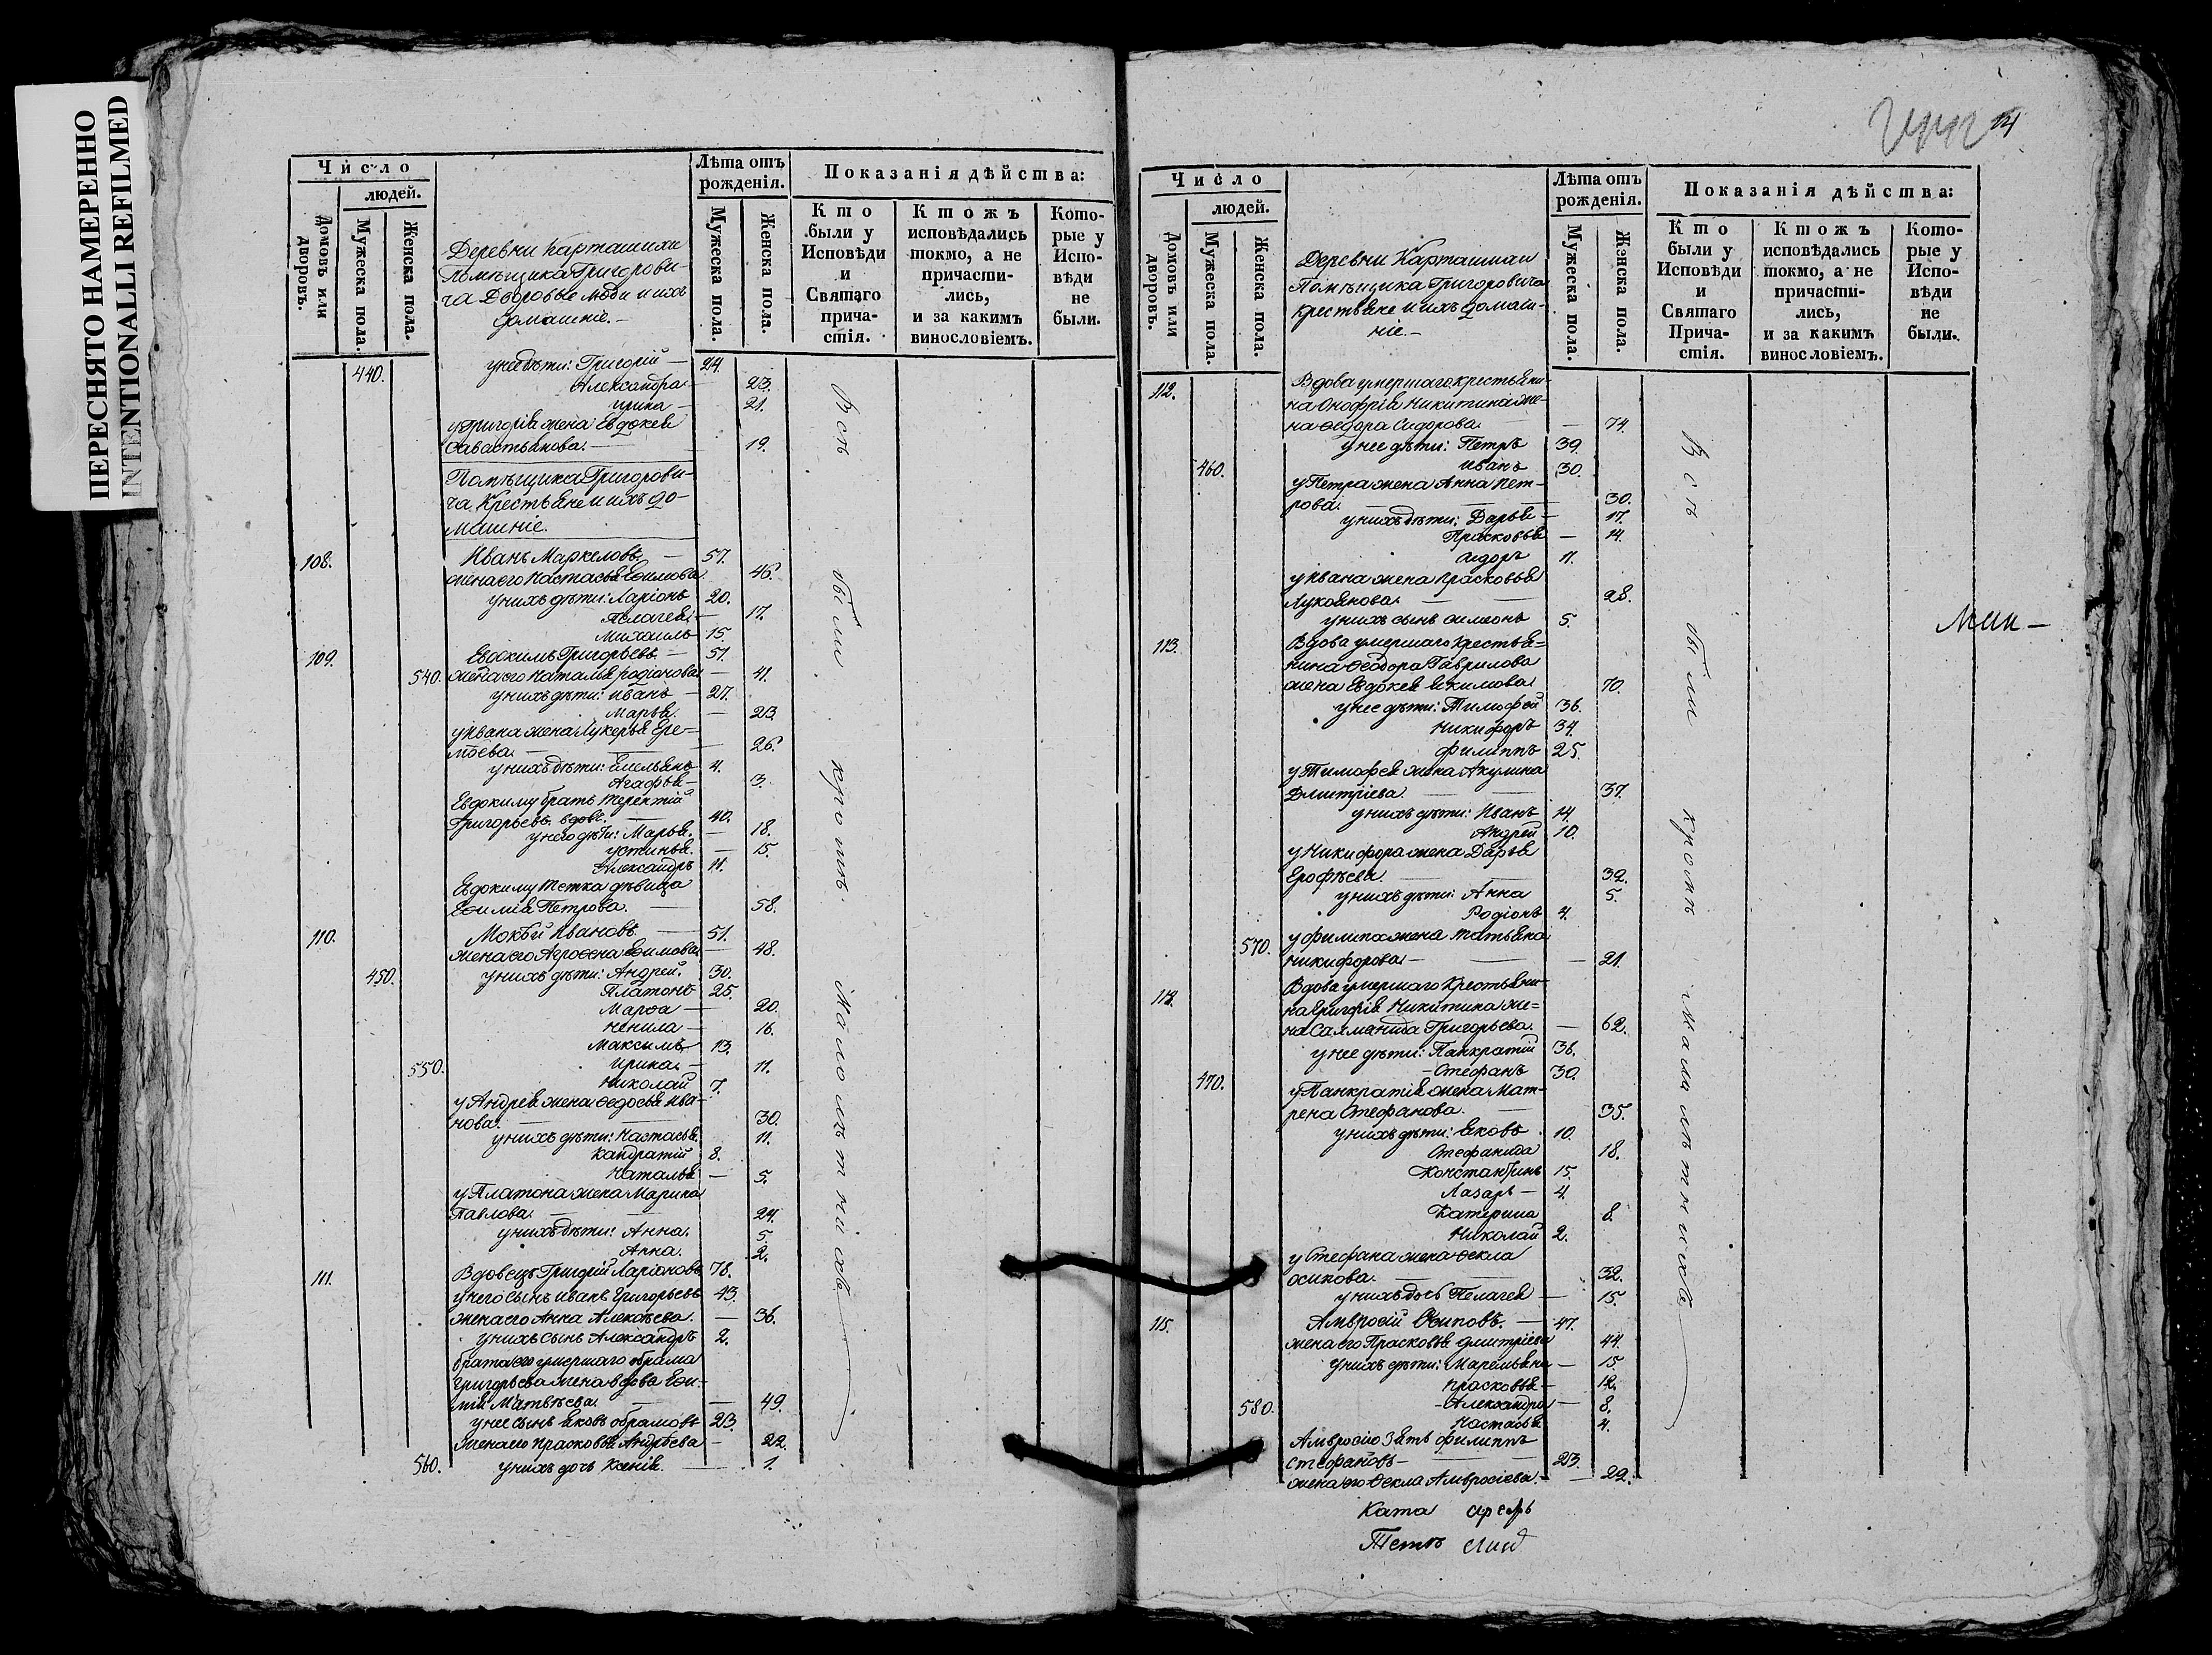 ПЕРЕСНЯТО НАМЕРЕННО
INTENTIONALLI REFILMED
Число
людей.
Домовъ или дворовъ.
Мужеска пола.
Женска пола.
Деревни Карташихи
Помѣщика Григорови-
ча Дворовые люди и ихъ
домашніе.-
Лѣта отъ
рожденія.
Мужеска пола.
Женска пола.
Показанія дѣйства:
Кто
были у
Исповѣди
и
Святаго
прича-
стія.
Ктожъ
исповѣдались
токмо, а не
причасти-
лись,
и за какимъ
винословіемъ.
Кото-
рые у
Испо-
вѣди
не
были.
440. у нее дѣти: Григорій — 24.
Александра — 23.
Ирина — 21.
у Григорія жена Евдокея
Савастьянова. — 19.
Помѣщика Григорови-
ча Крестьяне и ихъ до-
машніе.
108. Иванъ Маркеловъ. — 57.
жена его Настасья Еѳимова 46.
у нихъ дѣти: Ларіонъ 20.
Пелагея — 17.
Михаилъ 15.
109. Евдокимъ Григорьевъ. — 51.
540. жена его Наталія Родіонова — 41.
у нихъ дѣти: Иванъ — 27.
Марья. — 23.
у Ивана жена Лукерья Ере-
мѣева. — 26.
у нихъ дѣти: Емельянъ 4.
Агафья — 3.
Евдокиму братъ Терентій
Григорьевъ вдовъ. — 40.
у него дѣти: Марья. — 18.
Устинья. — 15.
Александръ 11.
Евдокиму тетка дѣвица
Еѳимія Петрова. — 58.
110. Мокѣй Ивановъ. — 51.
жена его Агроѳена Еѳимова — 48.
450. у нихъ дѣти: Андрей. 30.
Платонъ 25.
Марѳа — 20.
Ненила — 16.
Максимъ 13.
550. Ирина. — 11.
Николай 7.
у Андрея жена Ѳедосья Ива-
нова. — 30.
у нихъ дѣти: Настасья. 11.
Кандратій 8.
Наталья — 5.
у Платона жена Марина
Павлова. — 24.
у нихъ дѣти: Анна. 5.
Анна. 2.
111. Вдовецъ Григорій Ларіоновъ 78.
у него сынъ Иванъ Григорьевъ 43.
жена его Анна Алексѣева. — 36.
у нихъ сынъ Александръ 2.
брата его умершаго Абрама
Григорьева жена вдова Еѳи-
мія Матвѣева. — 49.
у нее сынъ Яковъ Абрамовъ 23.
жена его Прасковья Андрѣева — 22.
560. у нихъ дочь Ксенія. — 1.
Всѣ были кромѣ Малолѣтнихъ
14
Число
людей.
Домовъ или дворовъ.
Мужеска пола.
Женска пола.
Деревни Карташихи
Помѣщика Григоровича
крестьяне и ихъ домаш-
ніе.-
Лѣта отъ
рожденія.
Мужеска пола.
Женска пола.
Показанія дѣйства:
Кто
были у
Исповѣди
и
Святаго
Прича-
стія.
Ктожъ
исповѣдались
токмо, а не
причасти-
лись,
и за какимъ
винословіемъ.
Кото-
рые у
Испо-
вѣди
не
были.
112. Вдова умершаго крестьяни-
на Онофрія Никитина же-
на Ѳедора Сидорова. — 74.
у нее дѣти: Петръ 39.
460. Иванъ 30.
у Петра жена Анна Пет-
рова. — 30.
у нихъ дѣти: Дарья — 17.
Прасковья — 14.
Сидоръ 11.
у Ивана жена Прасковья
Лукоянова. — 28.
у нихъ сынъ Симеонъ 5.
113. Вдова умершаго крестья-
нина Ѳеодора Гаврилова
жена Евдокея Якимова 70.
у нее дѣти: Тимофей 36.
Никифоръ 34.
Филиппъ 25.
у Тимофея жена Акулина
Дмитріева. — 37.
у нихъ дѣти: Иванъ 14.
Андрей 10.
у Никифора жена Дарья
Ерофѣева. — 32.
у нихъ дѣти: Анна 5.
Родіонъ 4.
570. у Филипа жена Татьяна
Никифорова — 21.
114. Вдова умершаго Крестьяни-
на Григорія Никитина же-
на Саламанида Григорьева. — 62.
у нее дѣти: Панкратій 38.
470. Стефанъ 30.
у Панкратія жена Мат-
рена Стефанова. — 35.
у нихъ дѣти: Яковъ 10.
Стефанида 18.
Константинъ 15.
Лазарь — 4.
Катерина 8.
Николай 2.
у Стефана жена Ѳекла
Осипова. — 32.
у нихъ дочь Пелагея — 15.
115. Амвросій Осиповъ. — 47.
жена его Прасковья Дмитріева 44.
у нихъ дѣти: Маремьяна — 15.
Прасковья — 12.
580. Александра — 8.
Настасья 4.
Амвросію зять Филиппъ
Стефановъ — 23.
жена его Ѳекла Амвросіева. — 22.
Всѣ были кромѣ малолѣтнихъ